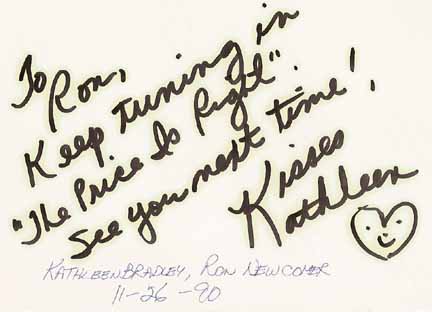 To Ron,
Keep tuning in
"The Price Is Right".
See you next time!,
Kisses
Kathleen
KATHLEEN BRADLEY, RON NEWCOMER
11-26-90